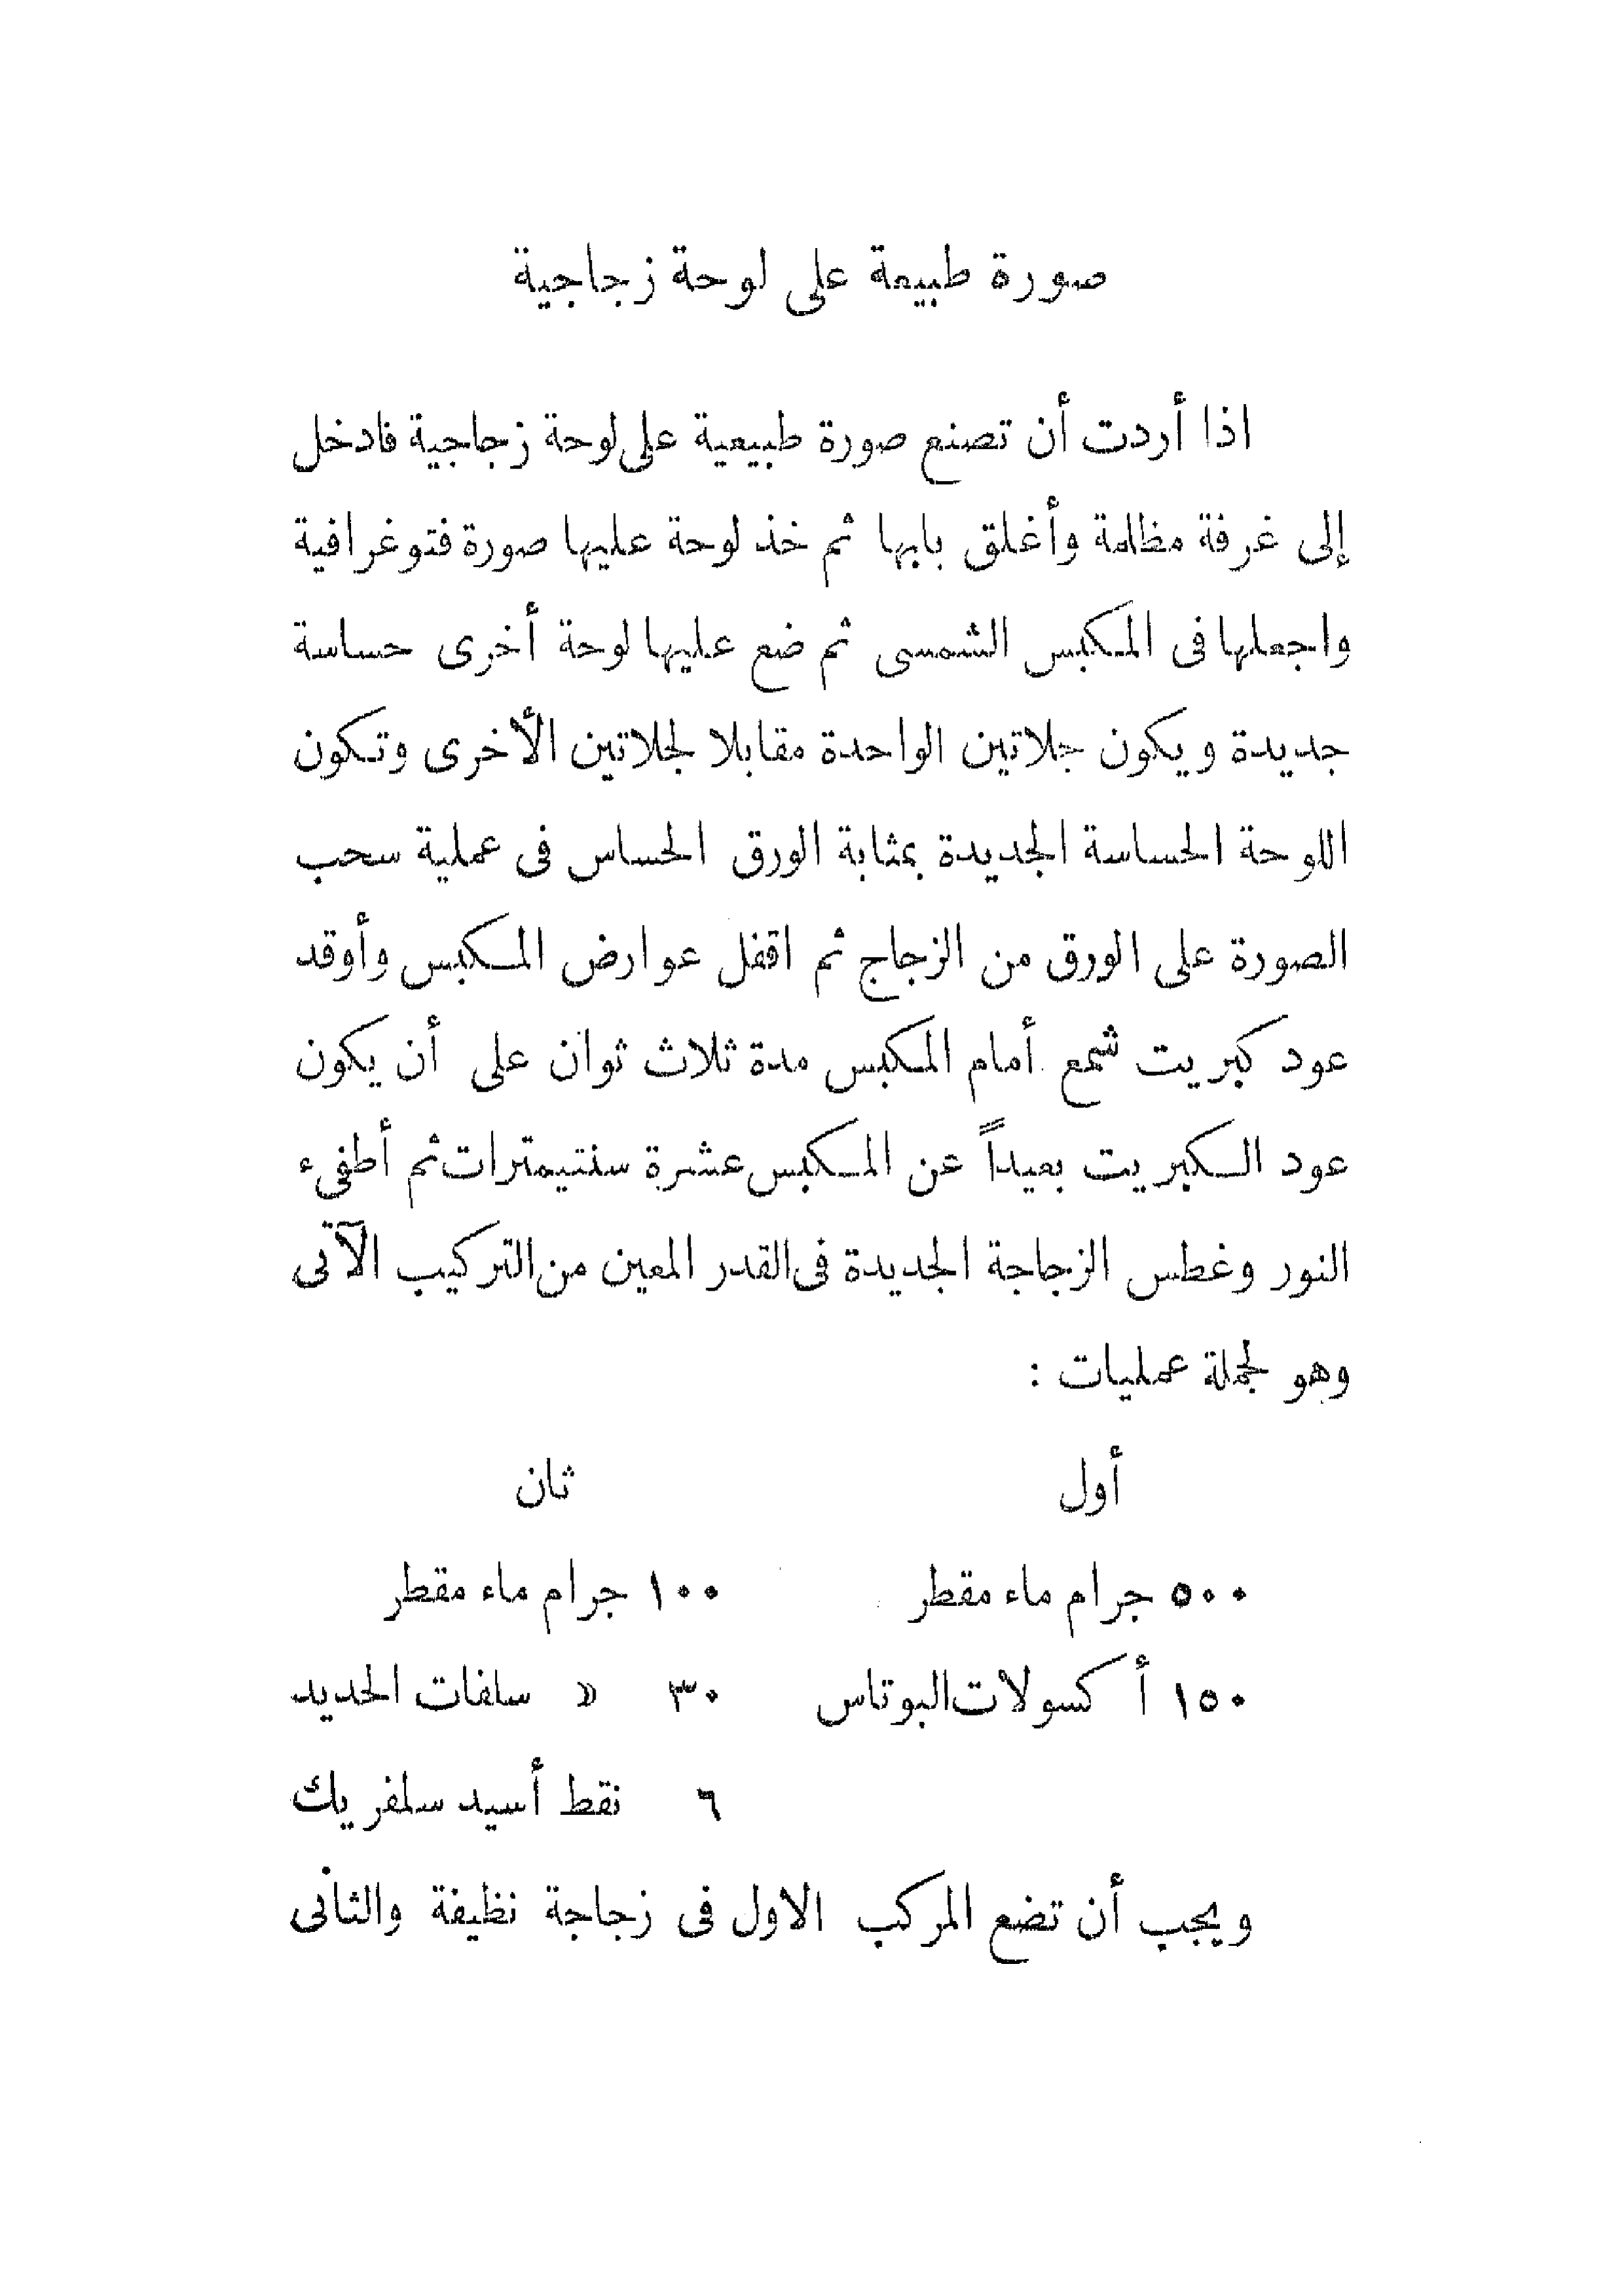 صورة طبيعة على لوحة زجاجية
اذا أردت أن تصنع صورة طبيعية على لوحة زجاجية فادخل
إلى غرفة مظلمة وأغلق بابها ثم خذ لوحة عليها صورة فتوغرافية
واجعلها فى المكبس الشمسى ثم ضع عليها لوحة أخرى حساسة
جديدة ويكون جلاتين الواحدة مقابلا لجلاتين الأخرى وتكون
اللوحة الحساسة الجديدة بمثابة الورق الحساس فى عملية سحب
الصورة على الورق من الزجاج ثم اقفل عوارض المكبس وأوقد
عود كبريت شمع أمام المكبس مدة ثلاث ثوان على أن يكون
عود الكبريت بعيداً عن المكبس عشرة سنتيمترات ثم أطفىء
النور وغطس الزجاجة الجديدة فى القدر المعين من التركيب الآتى
وهو لجملة عمليات :
أول ثان
٥٠٠ جرام ماء مقطر ١٠٠ جرام ماء مقطر
١٥٠ أكسولات البوتاس ٣٠ » سلفات الحديد
٦ نقط أسيد سلفريك
ويجب أن تضع المركب الاول فى زجاجة نظيفة والثانى